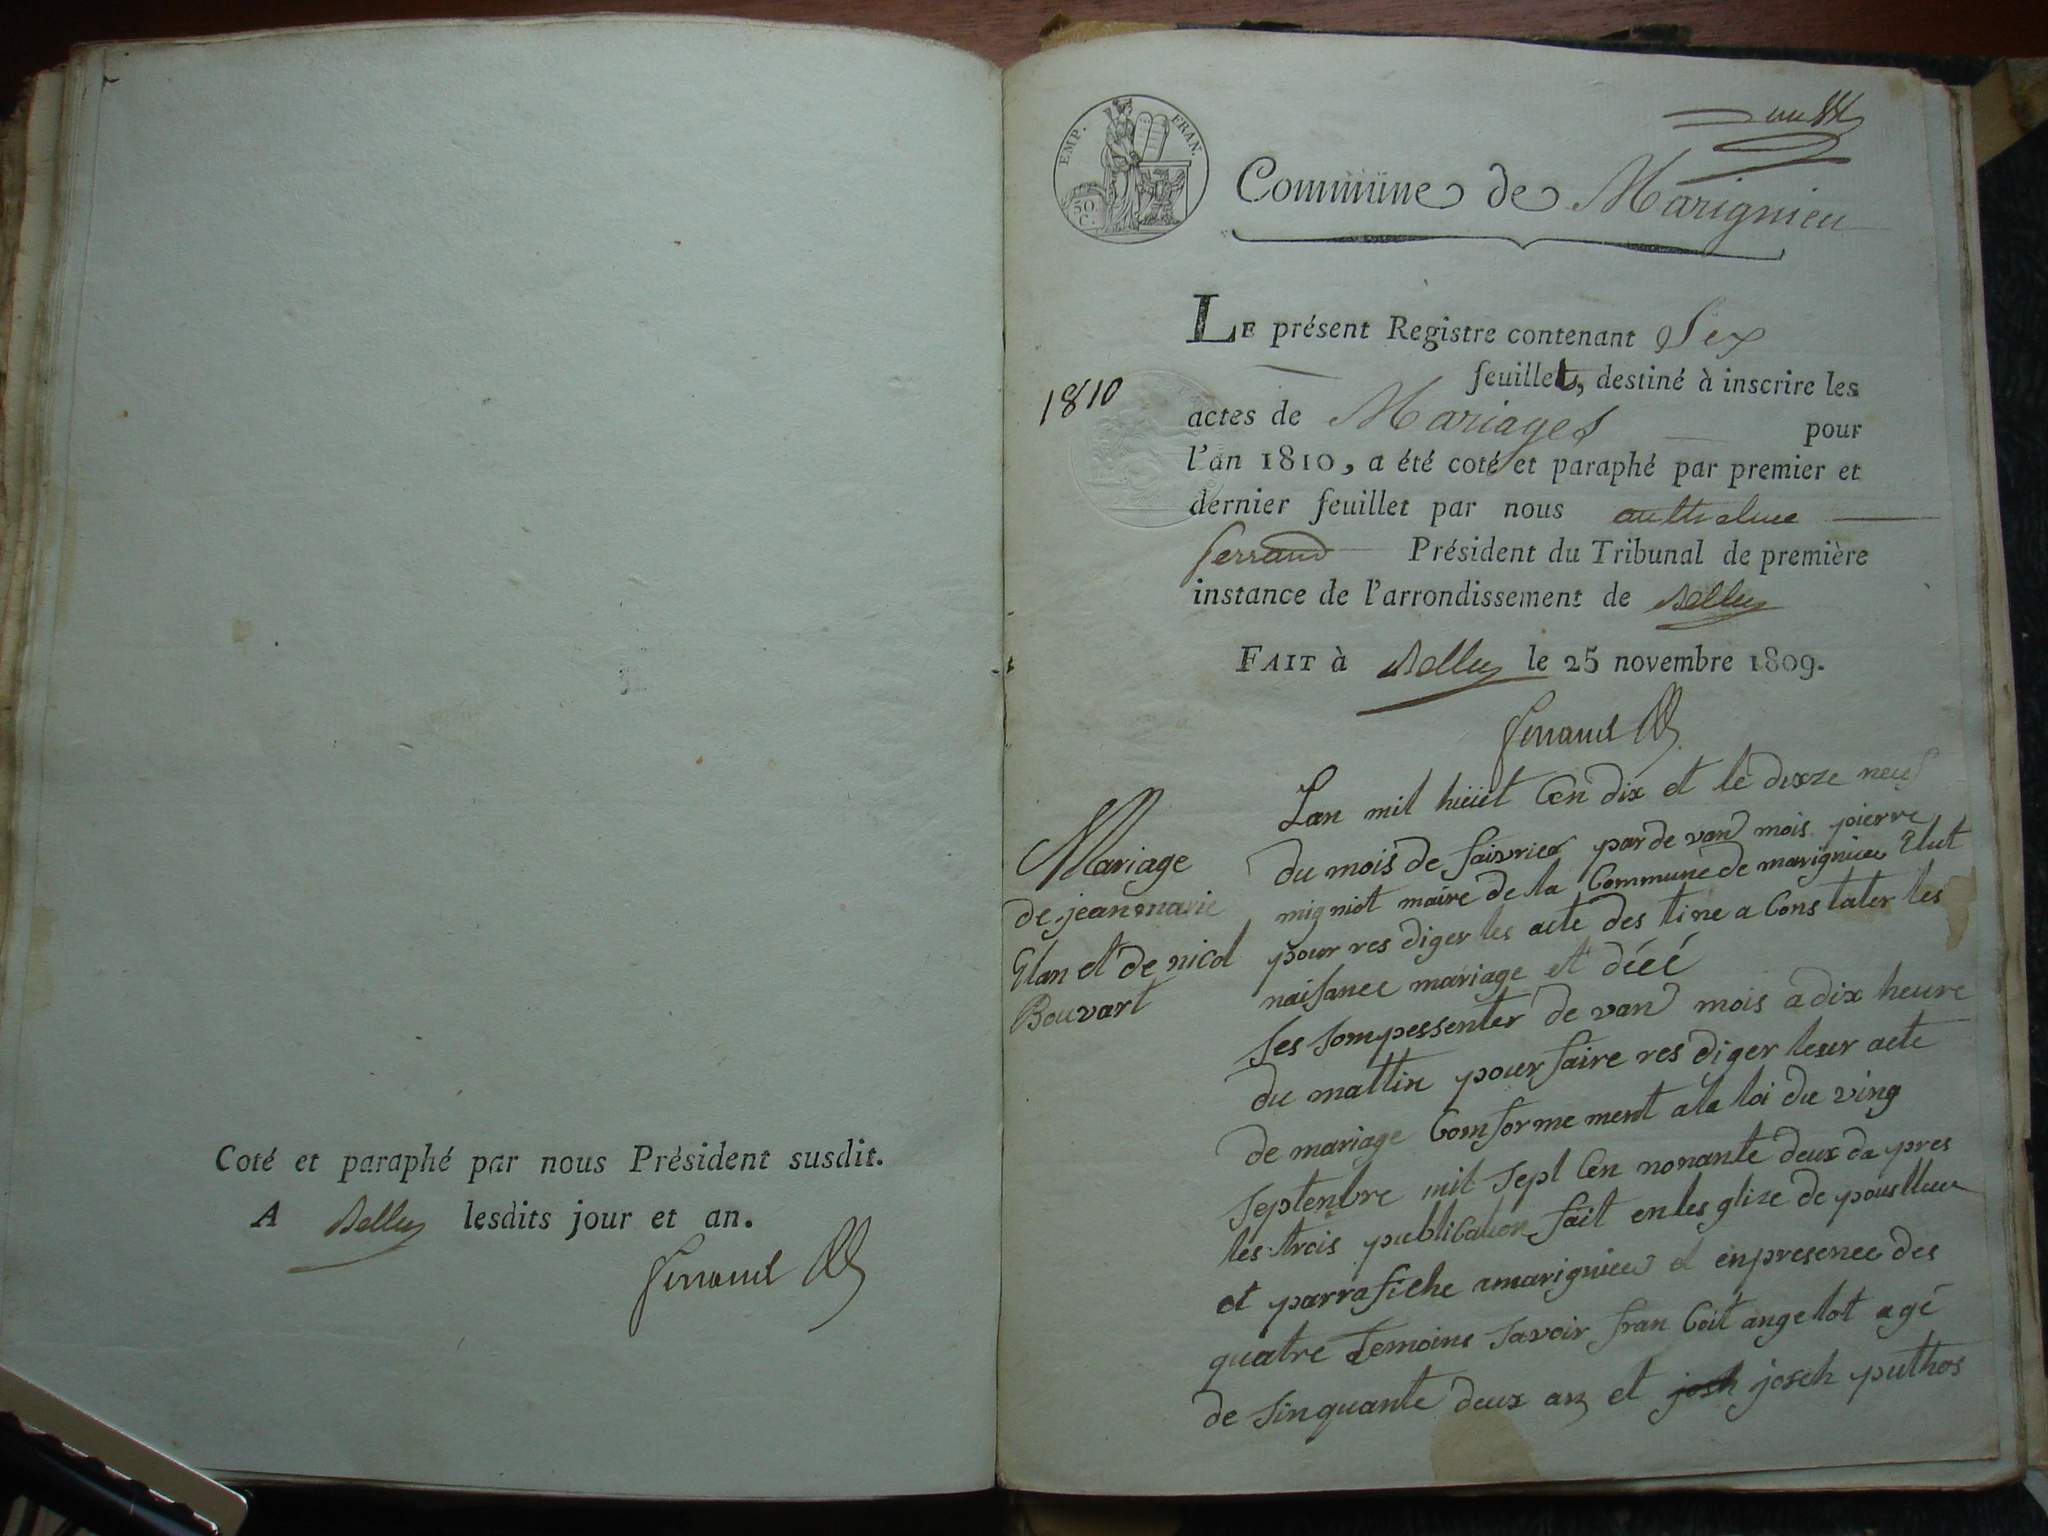 Coté et paraphé par nous Président susdit.
A Belley lesdits jour et an.
Ferrand
EMP. FRAN.
50 C.
Commune de Marignieu
LE présent Registre contenant Six
feuillet, destiné à inscrire les
1810
actes de Mariages pour
l'an 1810, a été coté et paraphé par premier et
dernier feuillet par nous anthelme
ferrand Président du Tribunal de première
instance de l'arrondissement de Belley
FAIT à Belley le 25 novembre 1809.
Ferrand
Mariage
de jean marie
Elan et de nicol
Bouvart
Lan mil hüiet Cen dix et le dixze neuf
du mois de faivrier par de van mois pierre
migniot maire de la Commune de marignieu Elut
pour res diger les acte des tine a Constater les
naisance mariage et déeé
ses sompessenter de van mois a dix heure
du mattin pour faire res diger leur acte
de mariage Comforme ment a la loi du ving
septenbre mil sept Cen nonante deux da pres
les trois publication fait en les glize de
et parrafiche amarignieu et enpresence des
quatre temoins savoir fran Coit angelot agé
de sinquante deux an et josch puthos